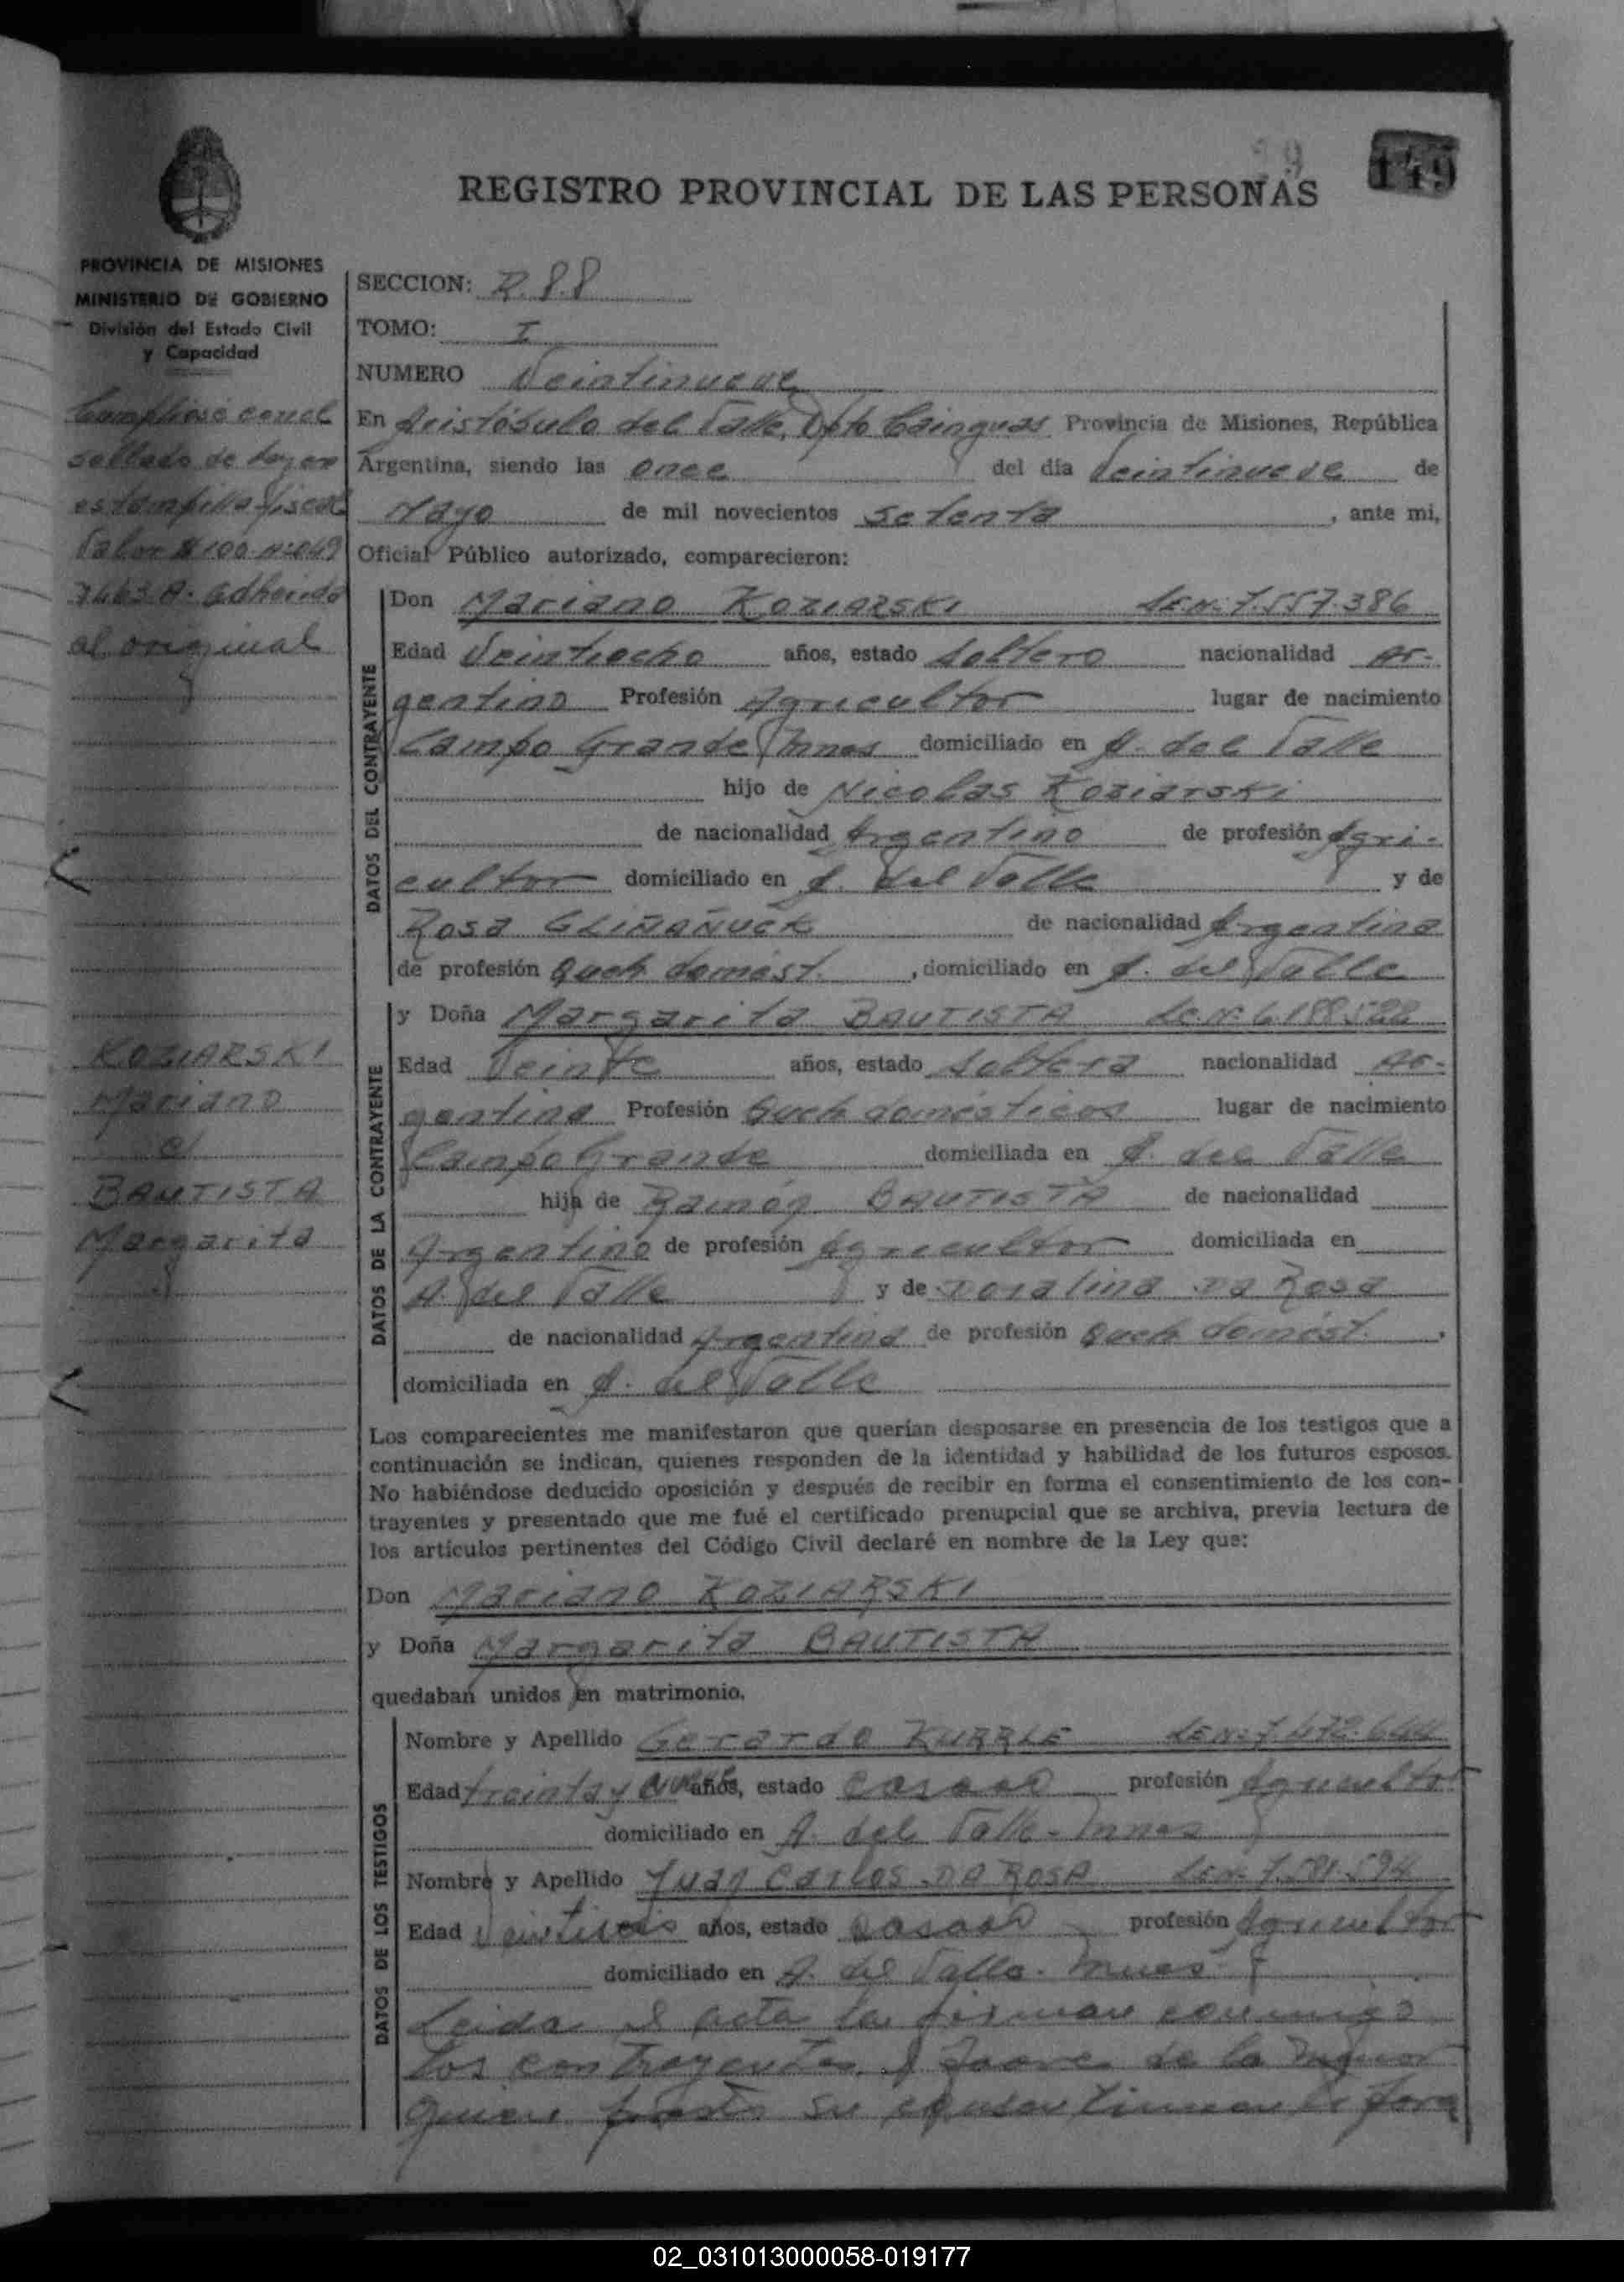 149
29
REGISTRO PROVINCIAL DE LAS PERSONAS
PROVINCIA DE MISIONES
MINISTERIO DE GOBIERNO
División del Estado Civil
y Capacidad
SECCION: R. 88
TOMO: I
NUMERO Veintinueve
En Aristóbulo del Valle, Dpto Cainguas Provincia de Misiones, República
Argentina, siendo las once del día Veintinueve de
Mayo de mil novecientos setenta, ante mi,
Oficial Público autorizado, comparecieron:
Cumpliose con el
sellado de Ley en
estampilla fiscal
Valor $ 100 Nº 049
7463 A. adherida
al original
DATOS DEL CONTRAYENTE
Don Mariano KOZIARSKI L.E.Nº 7.557.386
Edad Veintiocho años, estado soltero nacionalidad Ar-
gentino Profesión Agricultor lugar de nacimiento
Campo Grande Mnes domiciliado en A. del Valle
hijo de Nicolas Koziarski
de nacionalidad Argentino de profesión Agri-
cultor domiciliado en A. del Valle y de
Rosa GLIÑAÑUCK de nacionalidad Argentina
de profesión Queh. domést. , domiciliado en A. del Valle
KOZIARSKI
Mariano
c/
BAUTISTA
Margarita
DATOS DE LA CONTRAYENTE
y Doña Margarita BAUTISTA L.C.Nº 6.188.522
Edad Veinte años, estado soltera nacionalidad Ar-
gentina Profesión Queh domésticos lugar de nacimiento
Campo Grande domiciliada en A. del Valle
hija de Ramón BAUTISTA de nacionalidad
Argentino de profesión Agricultor domiciliada en
A. del Valle y de Doralina Da Rosa
de nacionalidad Argentina de profesión Queh domést. ,
domiciliada en A. del Valle
Los comparecientes me manifestaron que querían desposarse en presencia de los testigos que a
continuación se indican, quienes responden de la identidad y habilidad de los futuros esposos.
No habiéndose deducido oposición y después de recibir en forma el consentimiento de los con-
trayentes y presentado que me fué el certificado prenupcial que se archiva, previa lectura de
los artículos pertinentes del Código Civil declaré en nombre de la Ley que:
Don Mariano KOZIARSKI
y Doña Margarita BAUTISTA
quedaban unidos en matrimonio.
DATOS DE LOS TESTIGOS
Nombre y Apellido Gerardo KURRLE L.E.Nº 7.472.644
Edad treinta y años, estado casado profesión Agricultor
domiciliado en A. del Valle - Mnes
Nombre y Apellido Juan Carlos DA ROSA L.E.Nº 7.581.594
Edad Veintiseis años, estado casado profesión Agricultor
domiciliado en A. del Valle - Mnes
Leida el acta la firman conmigo
los contrayentes, Padre de la menor
quien presta su consentimiento para
02_031013000058-019177